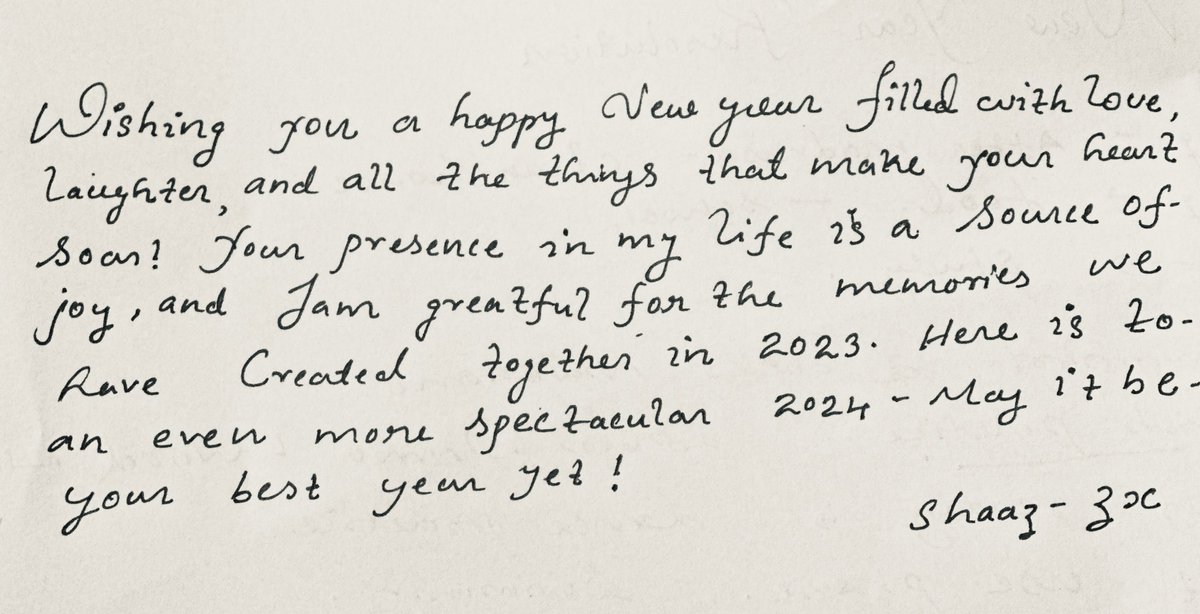 Wishing you a happy New year filled with love,
laughter, and all the things that make your heart
soar! Your presence in my life is a source of-
joy, and I am greatful for the memories we
have Created together in 2023. Here is to-
an even more spectacular 2024 - May it be-
your best year yet!
Shaaz-zx